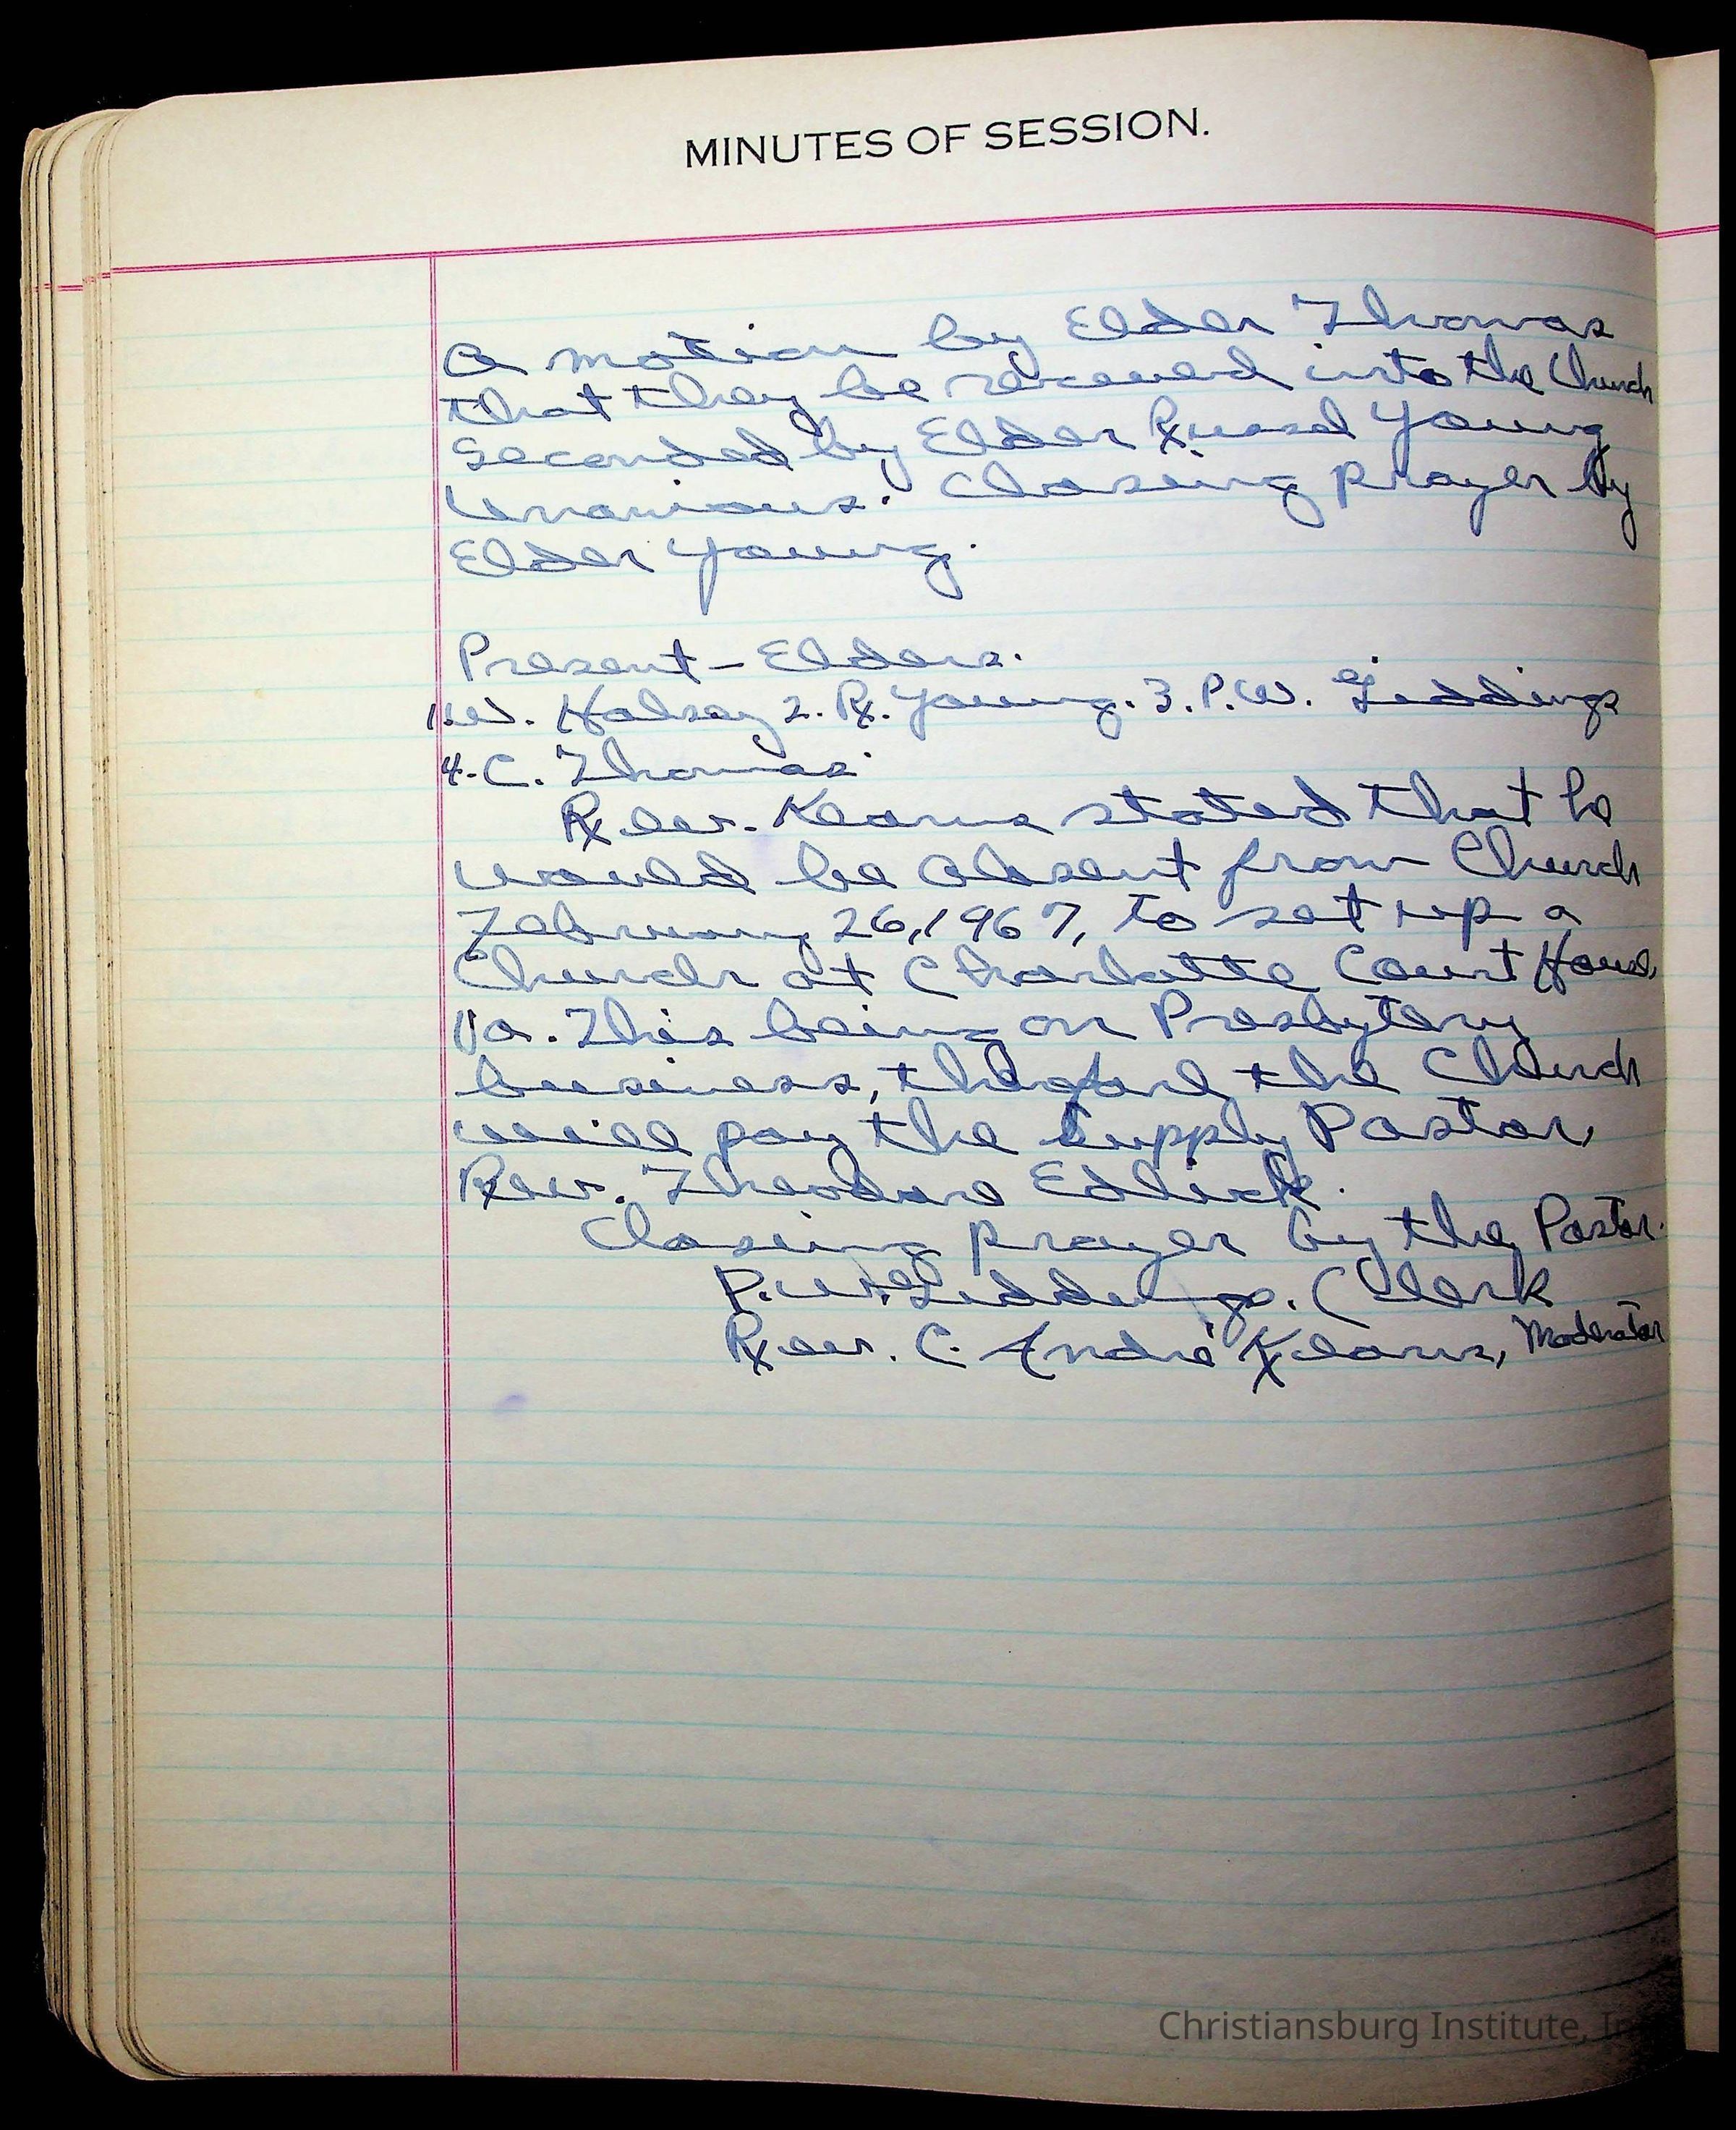 MINUTES OF SESSION.
A motion by Elder Thomas
that they be received into the Church
Seconded by Elder Young
Unanious. Closing prayer by
Elder Young.
Present - Elders.
1. W. Halsey 2. R. Young. 3. P.W. Giddings
4. C. Thomas
Rev. Kearns stated that he
would be absent from Church
February 26, 1967, to set up a
Church at Charlotte Court House,
Va. This being on Presbytery
business, therefore the Church
will pay the Supply Pastor,
Rev. Theodore Edlick.
Closing prayer by the Pastor.
P.W. Giddings. Clerk
Rev. C. André Kearns, Moderator
Christiansburg Institute,